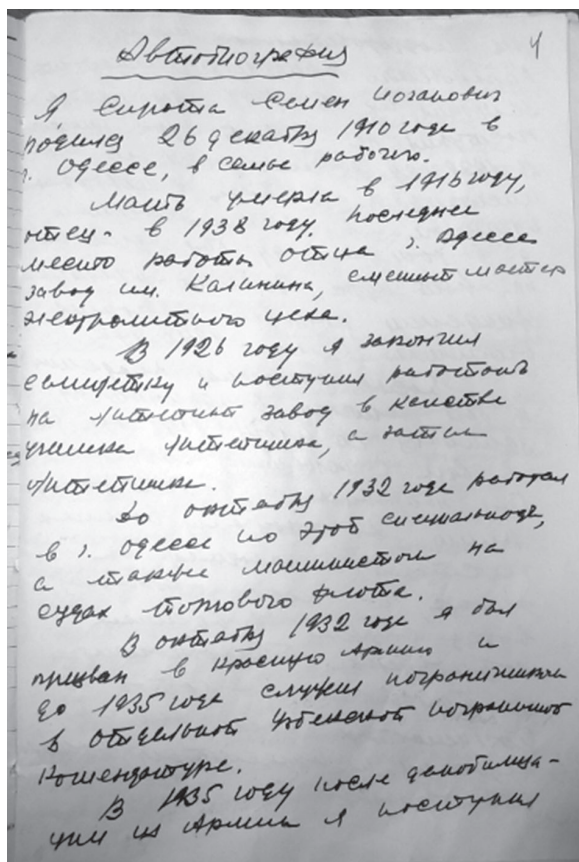 4
Автобиография
Я Сирота Семен
родился 26 декабря 1910 года в
г. Одессе, в семье рабочего.
Мать умерла в 1916 году,
отец - в 1938 году. Последнее
место работы отца г. Одесса
завод им. Калинина, сменный мастер
цеха.
В 1926 году я закончил
семилетку и поступил работать
на завод в качестве
ученика а затем
До октября 1932 года работал
в г. Одессе по этой специальности,
а также машинистом на
судах торгового флота.
В октябре 1932 года я был
призван в Красную Армию и
до 1935 года служил пограничником
в отдельной Узбекской пограничной
комендатуре.
В 1935 году после демобилиза-
ции из Армии я поступил